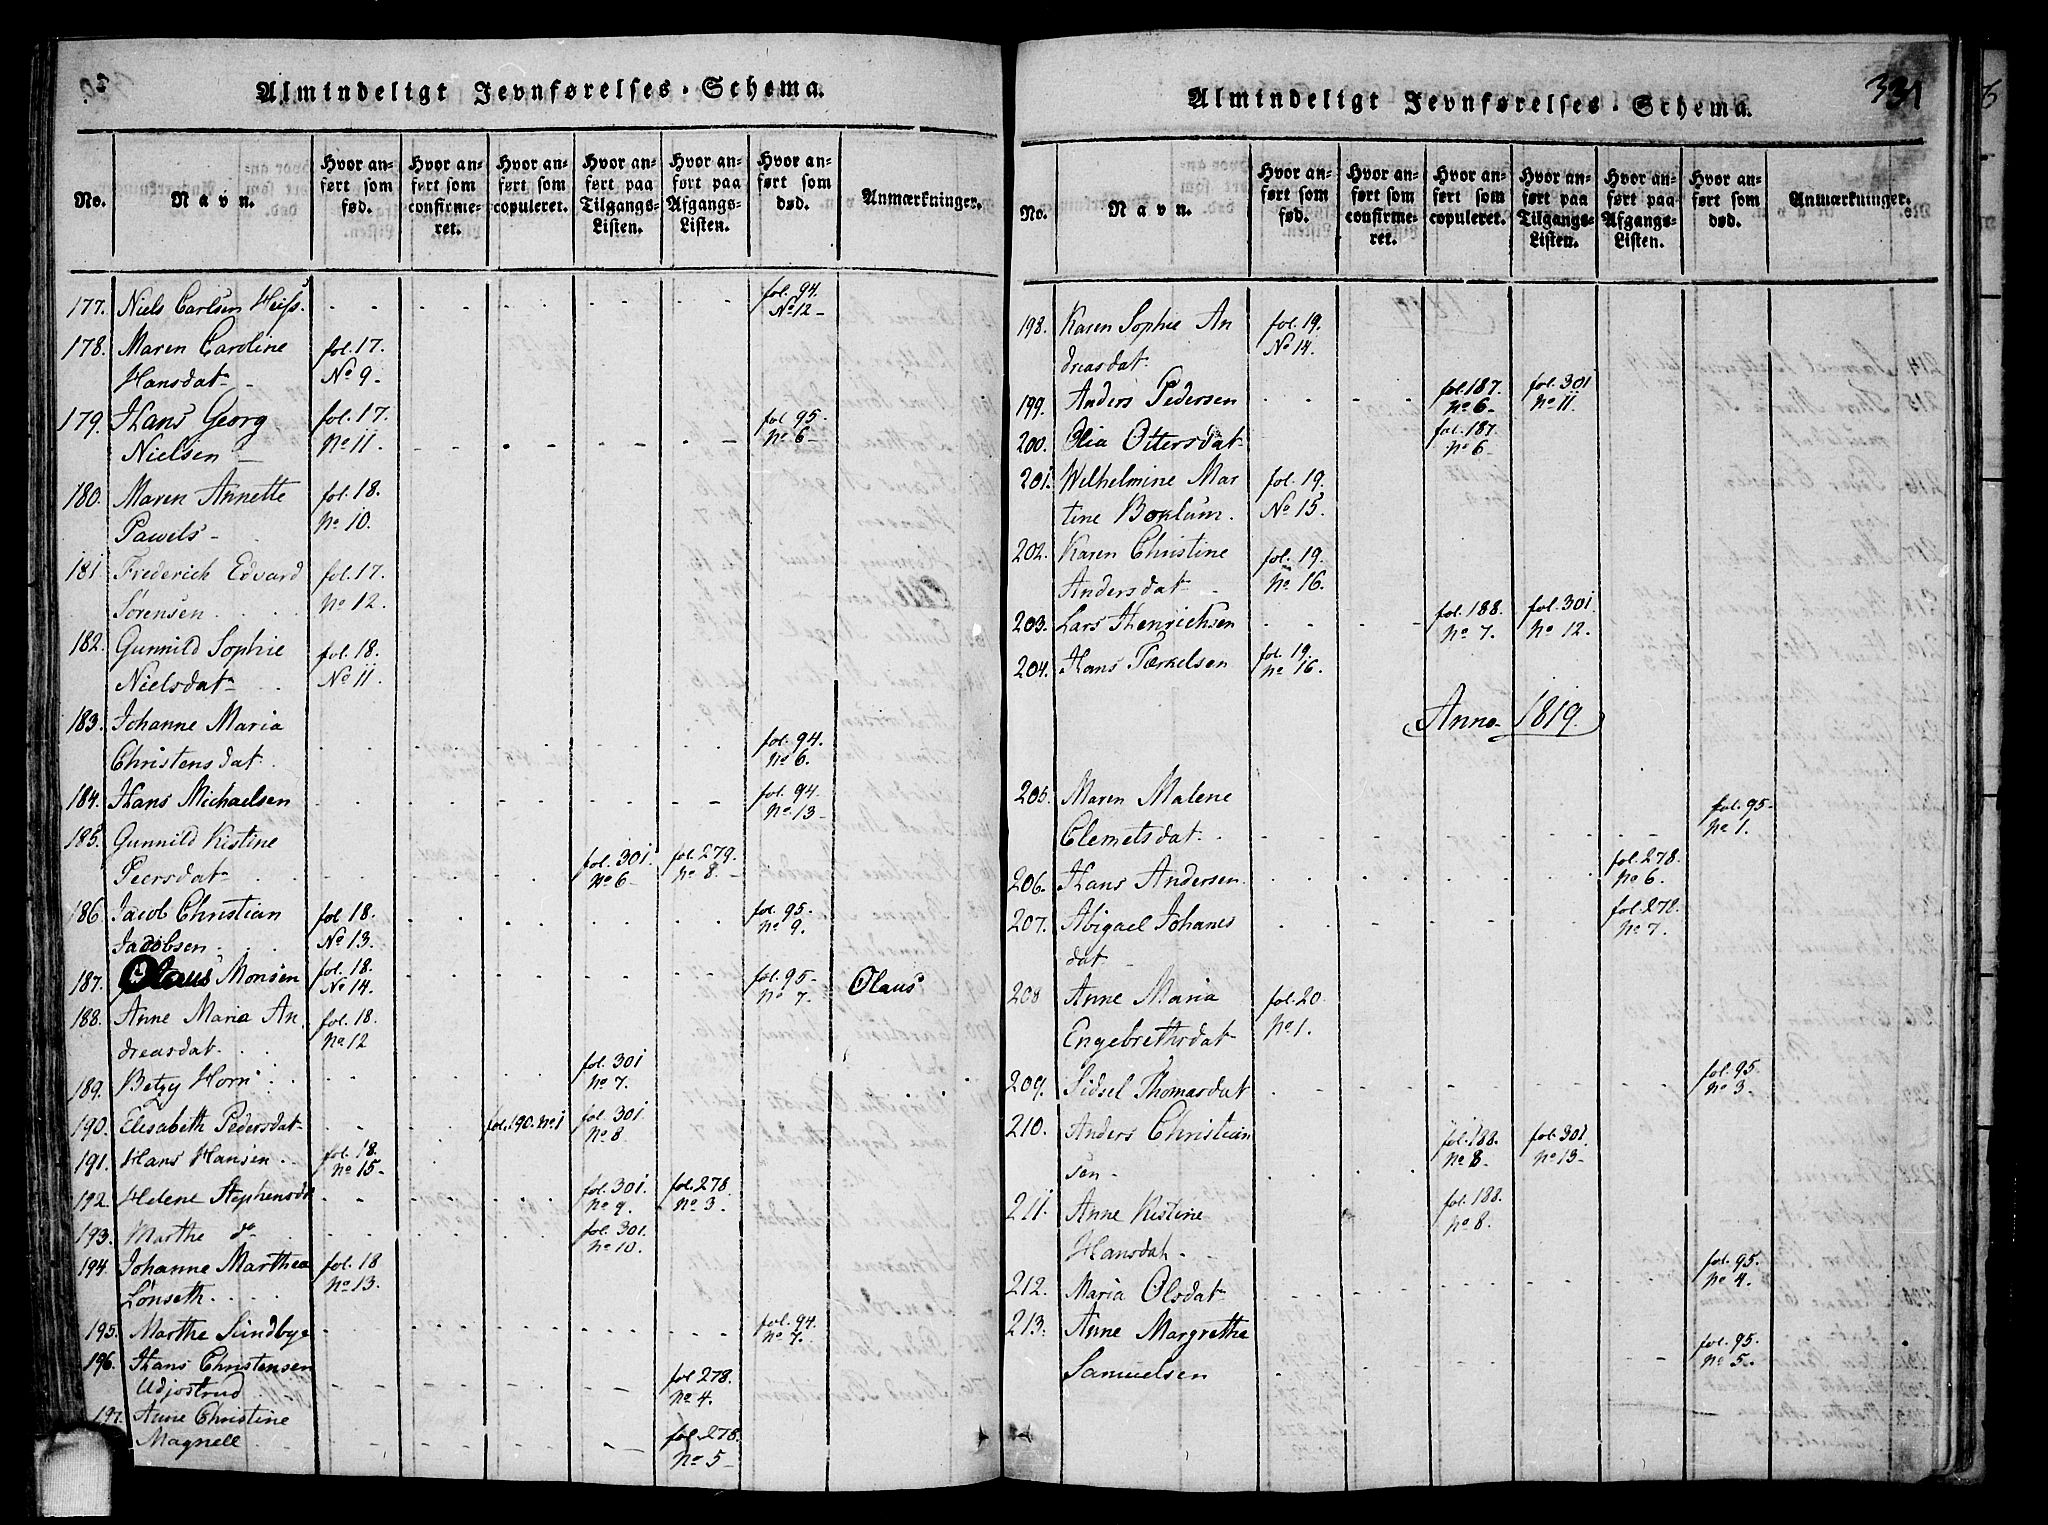 Almindeligt Jevnførelses-Schema.
No. Navn. Hvor anført som fød. Hvor anført som confirmeret. Hvor anført som copuleret. Hvor anført paa Tilgangs-Listen. Hvor anført paa Afgangs-Listen. Hvor anført som død. Anmærkninger.
177. Niels Carlsen Heiss. - - - - - fol. 94. No 12 -
178. Maren Caroline fol. 17.
Hansdat - No 9 -
179. Hans Georg fol. 17. fol. 95.
Nielsen - No 11. - - - - - No 6 -
180. Maren Annette fol. 18.
Pawels - No 10.
181. Frederich Edvard fol. 17.
Sørensen . . . No 12.
182. Gunnild Sophie fol. 18.
Nielsdat . . No 11.
183. Johanne Maria fol. 94.
Christensdat . . - - - - - No 6.
184. Hans Michaelsen - - - - - fol. 94. No 13 -
185. Gunnild Kistine fol. 301. fol. 279.
Peersdat . . . - - - No 6 - No 8. -
186. Jacob Christian fol. 18. fol. 95.
Jacobsen . . . No 13. - - - - No 9.
187. Olaus Monsen fol. 18. No 14. - - - - fol. 95 - No 7. Olaus
188. Anne Maria An- fol. 18.
dreasdat . . . No 12
189. Betzy Horn . . - - - fol. 301 No 7.
190. Elisabeth Pedersdat - - fol. 190. No 1 fol. 301 No 8.
191. Hans Hansen . . fol. 18. No 15 -
192. Helene Stephensda - - - fol. 301. No 9. fol. 278. No 3.
193. Marthe do - - - fol. 301. No 10.
194. Johanne Marthea fol. 18
Lønseth . . . . No 13.
195. Marthe Sundbye - - - - - fol. 94. No 7.
196. Hans Christensen fol. 278.
Udjostrud . . - - - - No 4.
197. Anne Christine fol. 278.
Magnell . . - - - - No 5 -
331
Almindeligt Jevnførelses-Schema.
No. Navn. Hvor anført som fød. Hvor anført som confirmeret. Hvor anført som copuleret. Hvor anført paa Tilgangs-Listen. Hvor anført paa Afgangs-Listen. Hvor anført som død. Anmærkninger.
198. Karen Sophie An fol. 19.
dreasdat. No 14.
199. Anders Pedersen - - - fol. 187. No 6 - fol. 301 No 11.
200. Olia Ottersdat fol. 187. No 6 -
201. Wilhelmine Mar fol. 19.
tine Boklum. No 15.
202. Karen Christine fol. 19.
Andersdat - No 16.
203. Lars Henrichsen - - - fol. 188. No 7. fol. 301. No 12.
204. Hans Tærkelsen fol. 19. No 16.
Anno 1819.
205. Maren Malene fol. 95 -
Clemetsdat. . - - - - - No 1.
206. Hans Andersen. - - - - fol. 278. No 6.
207. Abigael Johanes fol. 278. No 7.
dat -
208 Anne Maria fol. 20.
Engebrethsdat No 1.
209. Sidsel Thomasdat - - - - - fol. 95. No 3 -
210. Anders Christian fol. 188. fol. 301.
sen - - - No 8 - No 13 -
211. Anne Kistine fol. 188.
Hansdat - - No 8.
212. Maria Olsdat - - - - - fol. 95. No 4 -
213. Anne Margrethe fol. 95.
Samuelsen - - - - - No 5 -